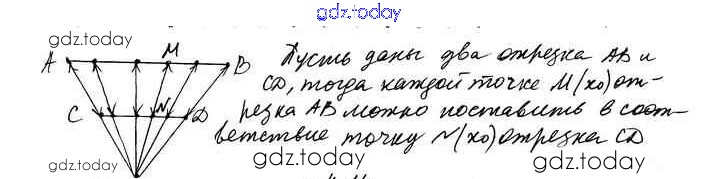 gdz.today
gdz.today
A M B
Пусть даны два отрезка AB и
CD, тогда каждой точке M(x₀) от-
C N D
резка AB можно поставить в соот-
ветствие точку N(x₀) отрезка CD
gdz.today
gdz.today
gdz.today